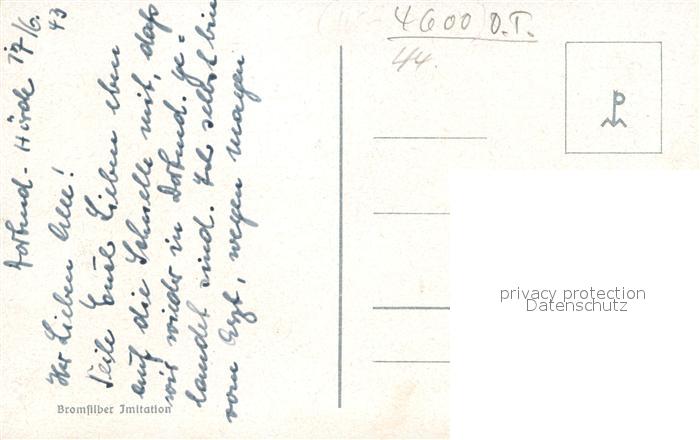 Dortmd - Hörde 17/6.
43
Ihr Lieben alle!
Teile Euch Lieben eben
auf die Schnelle mit, daß
wir wieder in Dortmd. ge=
landet sind. Ich selbst bin
vom Arzt, wegen Magen
Bromsilber Imitation
4600 D.T.
44.
P
privacy protection
Datenschutz